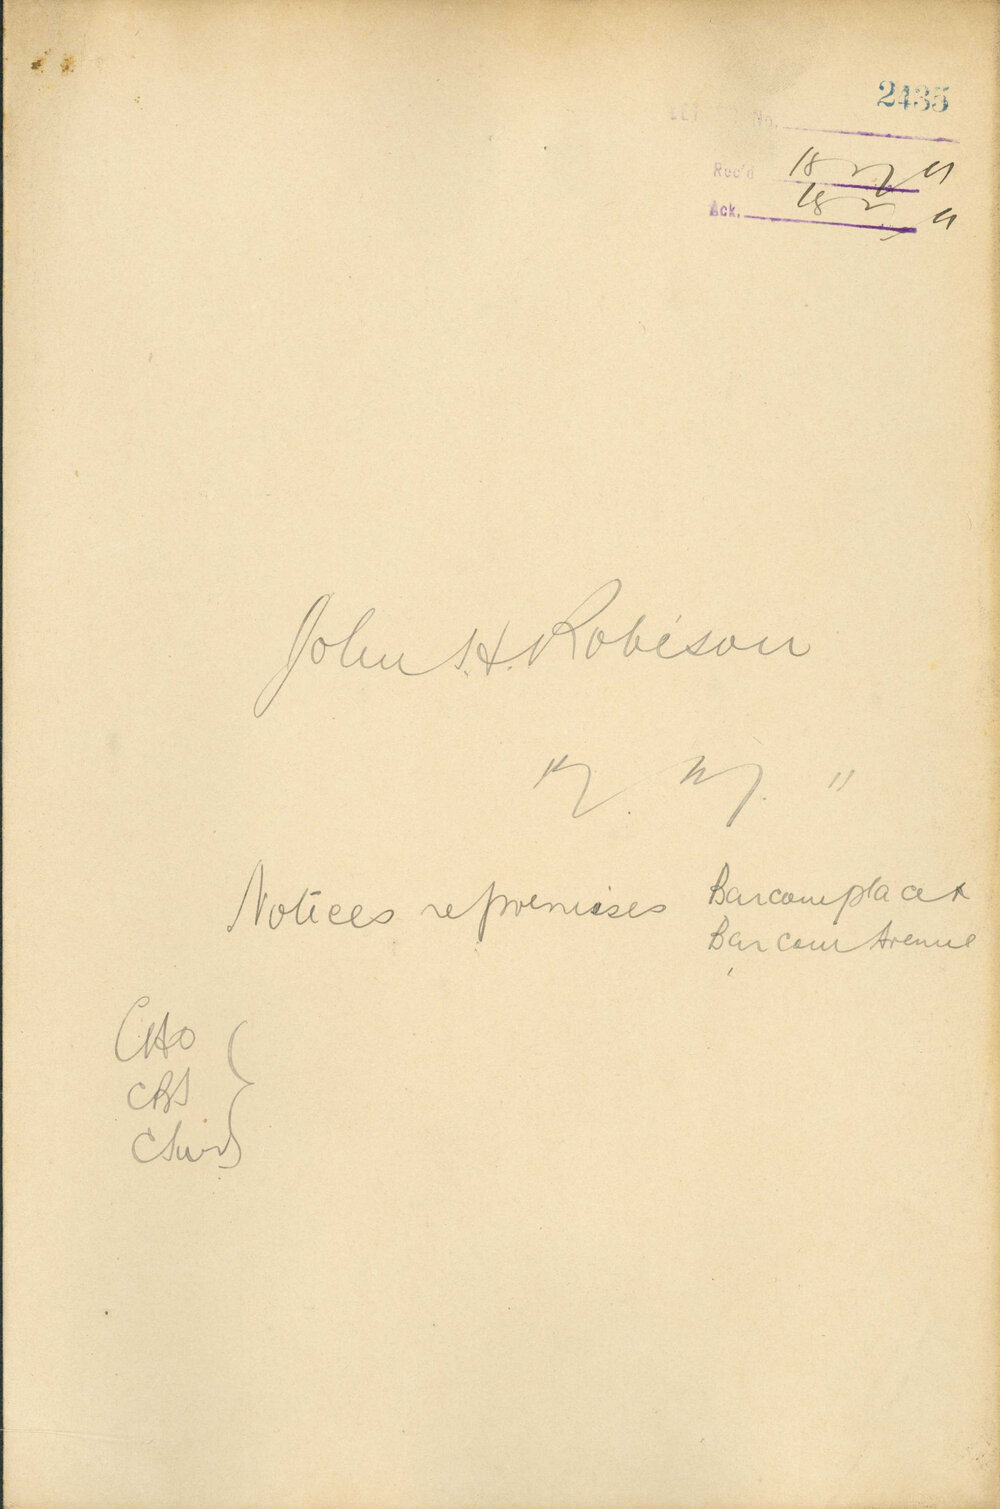 2435
LET No.
Rec'd 18 2 11
Ack. 18 2 11
John S. H. Robison
11
Notices re premises Barcom place &
Barcom Avenue
CHO
CBS